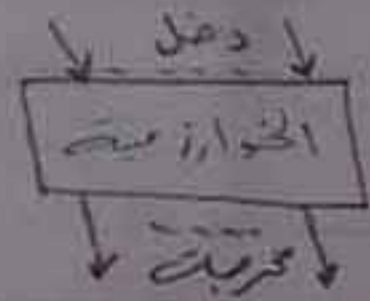 دخل
الخوارزمية
مخرجات